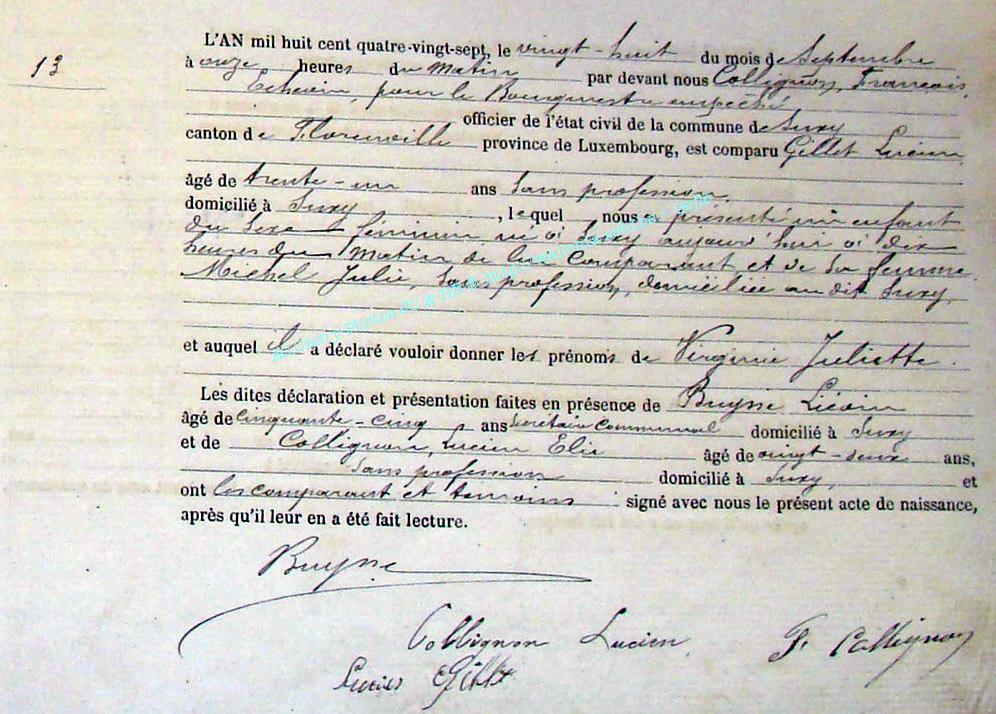 13
L'AN mil huit cent quatre-vingt-sept, le vingt-huit du mois de Septembre
à onze heures du Matin par devant nous Collignon, François,
Echevin, pour le Bourgmestre empêché
officier de l'état civil de la commune de Suxy
canton de Florenville province de Luxembourg, est comparu Gillet Lucien
âgé de trente-un ans Sans profession
domicilié à Suxy, lequel nous a présenté un enfant
du Sexe feminin né à Suxy aujourd'hui à dix
heures du Matin de lui Comparant et de Sa femme
Michel Julie, Sans profession, domiciliée au dit Suxy,
et auquel il a déclaré vouloir donner les prénoms de Virginie Juliette.
Les dites déclaration et présentation faites en présence de Buysse Liévin
âgé de cinquante-cinq ans Secrétaire Communal domicilié à Suxy
et de Collignon, Lucien Elie âgé de vingt-deux ans,
Sans profession domicilié à Suxy, et
ont les comparant et temoins signé avec nous le présent acte de naissance,
après qu'il leur en a été fait lecture.
Buysse
Collignon Lucien. F. Collignon
Lucien Gillet